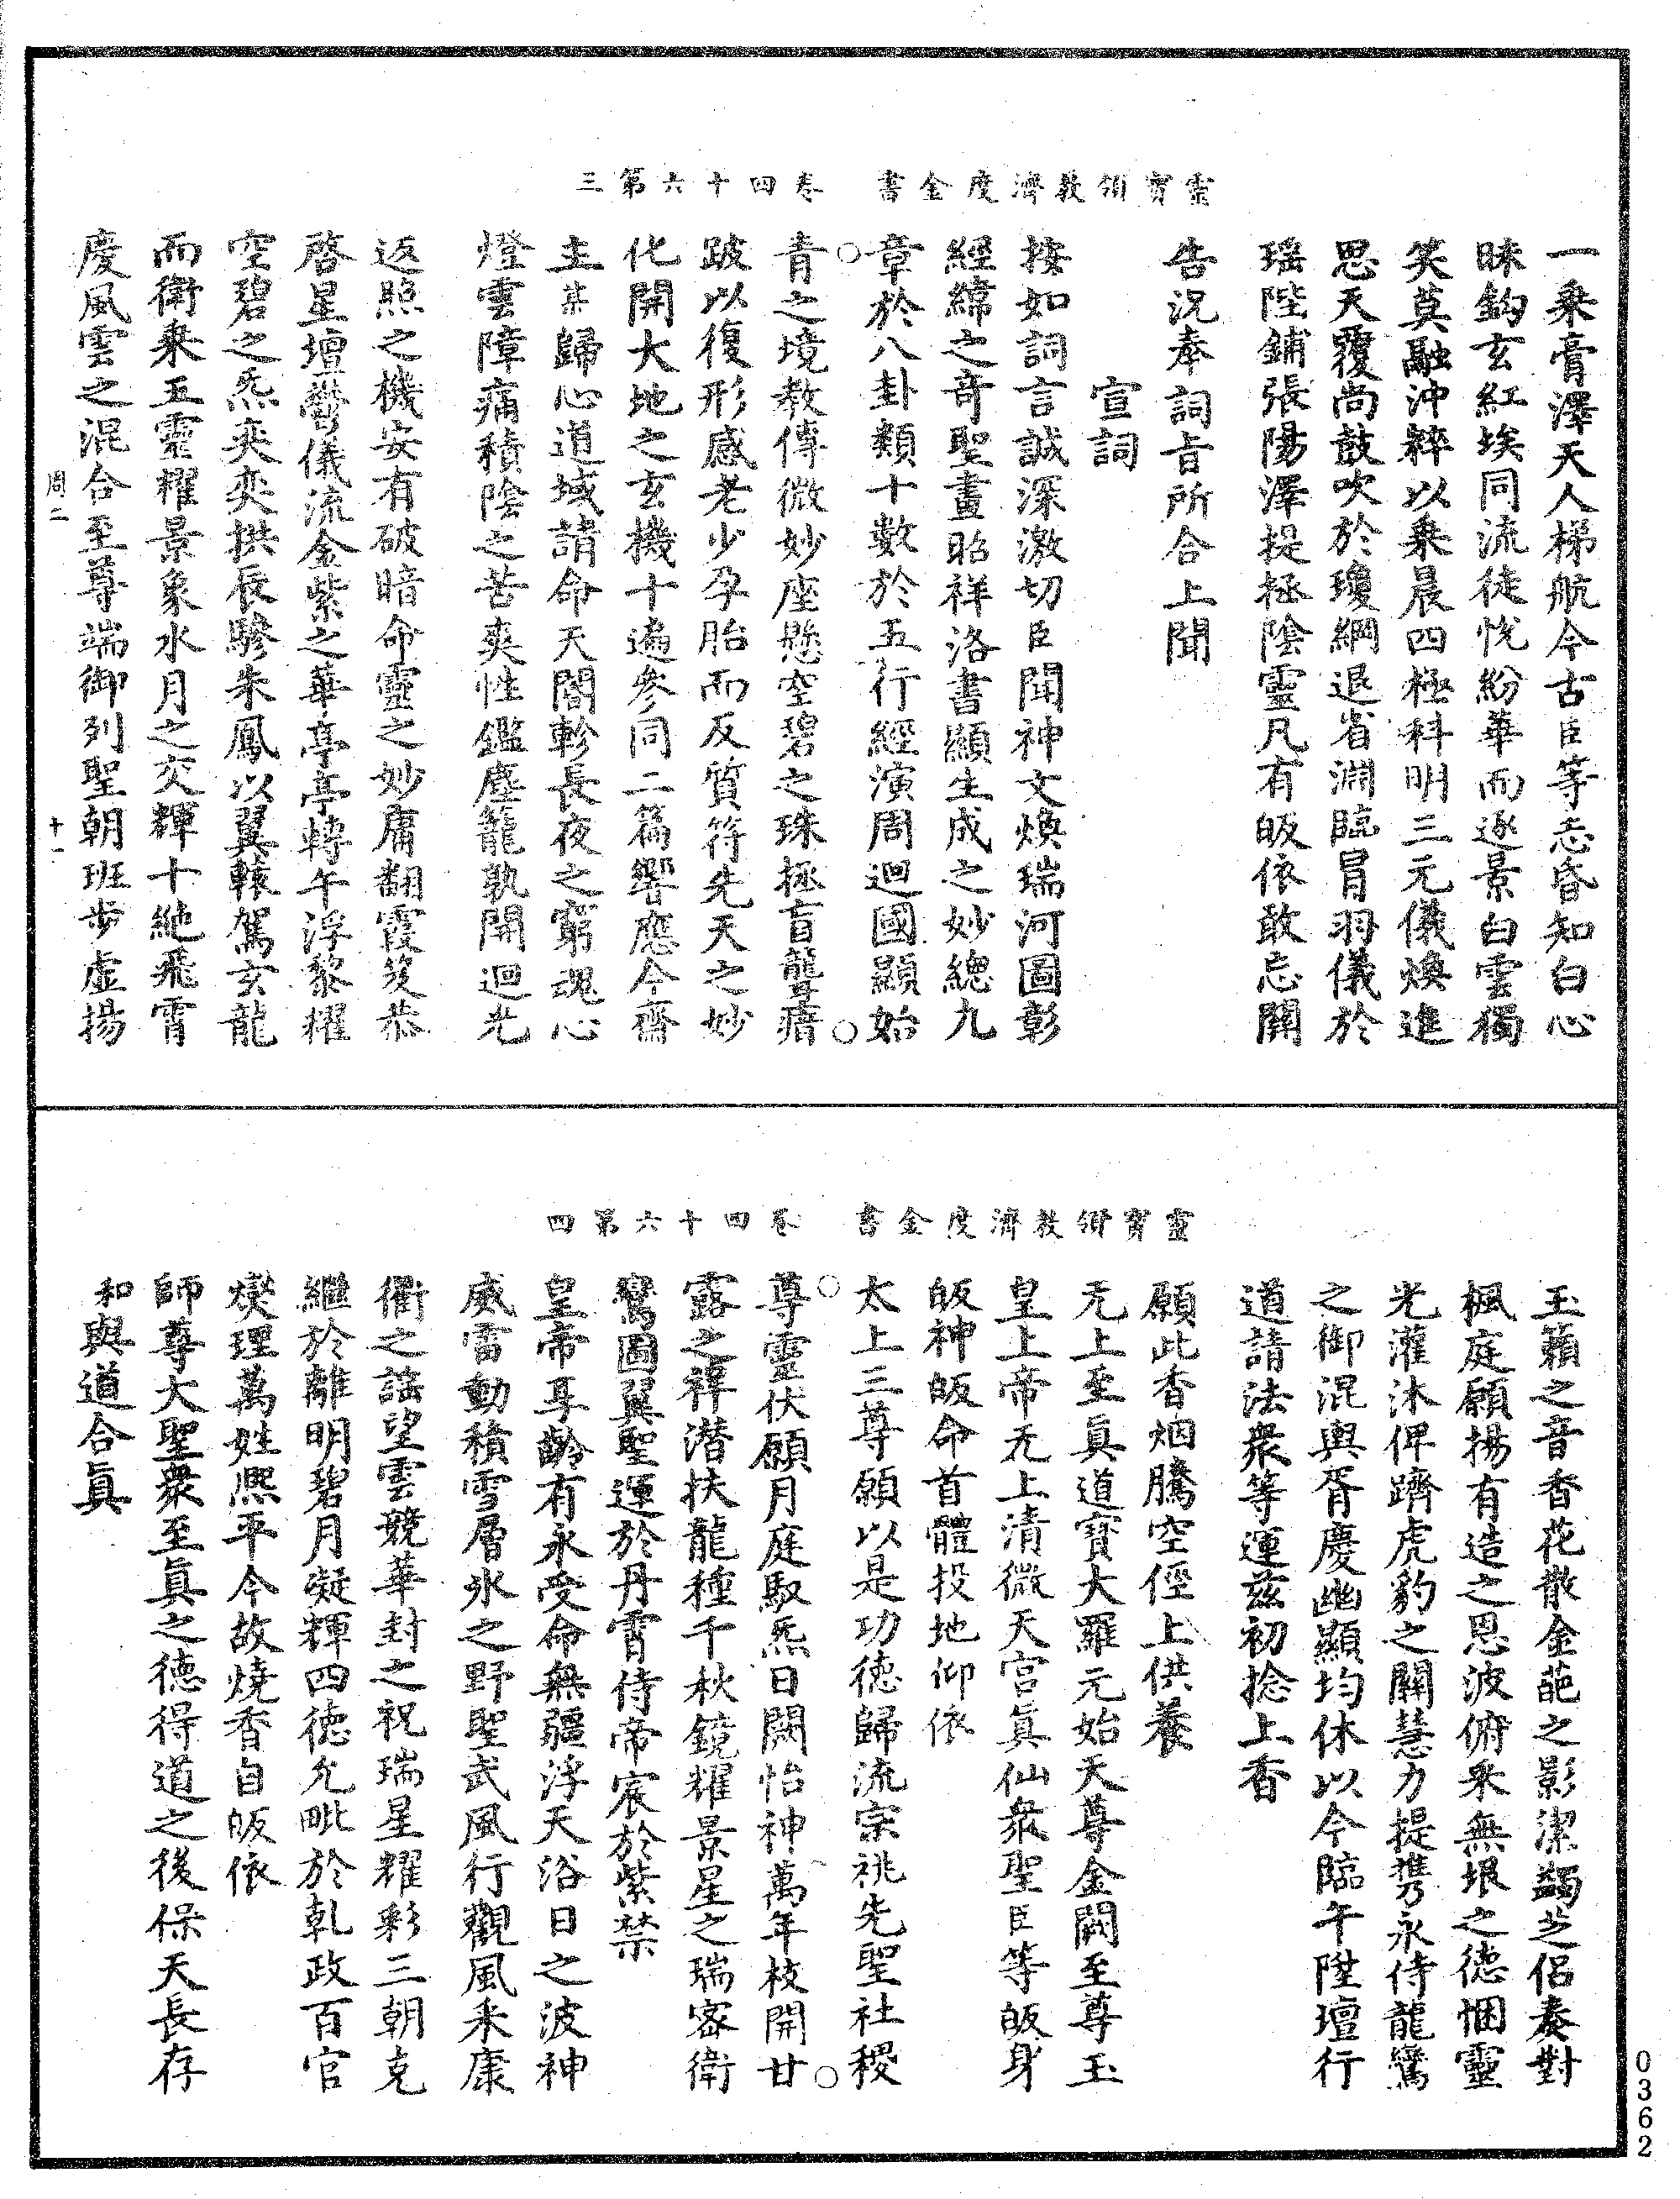 靈寶領教濟度金書　卷四十六第三
一乗膏澤天人梯航今古臣等忝昏知白心
昧鈎玄紅埃同流徒恱紛華而逐景白雲獨
笑莫融沖粹以乗晨四極科明三元儀煥進
思天覆尚鼓吹於瓊綱退省淵臨冒羽儀於
瑶陛鋪張陽澤提拯陰靈凡有皈依敢忘關
告況奉詞旨所合上聞
宣詞
按如詞言誠深激切臣聞神文煥瑞河圖彰
經緯之竒聖畫昭祥洛書顯生成之妙總九
章於八卦類十數於五行經演周迴國顯始
青之境教傳微妙座懸空碧之珠拯盲聾瘖
跛以復形感老少孕胎而反質符先天之妙
化開大地之玄機十遍參同二篇響應今齋
主某歸心道域請命天閽軫長夜之窮魂心
燈雲障痛積陰之苦爽性鑑塵籠孰開迴光
返照之機安有破暗命靈之妙庸翻霞笈恭
啓星壇鬱儀流金紫之華亭亭轉午浮黎耀
空碧之炁奕奕拱辰驂朱鳳以翼轅駕玄龍
而衛乗五靈耀景象水月之交輝十絶飛霄
慶風雲之混合至尊端御列聖朝班步虛揚
周二　十一
靈寶領教濟度金書　卷四十六第四
玉籟之音香花散金葩之影潔蠲芝侣奏對
楓庭願揚有造之恩波俯采無垠之德悃靈
光灌沐俾躋虎豹之關慧力提携永侍龍鸞
之御混輿胥慶幽顯均休以今臨午陞壇行
道請法衆等運兹初捻上香
願此香烟騰空徑上供養
无上至眞道寳大羅元始天尊金闕至尊玉
皇上帝无上清微天宫眞仙衆聖臣等皈身
皈神皈命首體投地仰依
太上三尊願以是功徳歸流宗祧先聖社稷
尊靈伏願月庭馭炁日闕怡神萬年枝開甘
露之禕潜扶龍種千秋鏡耀景星之瑞密衛
鸞圖翼聖運於丹霄侍帝宸於紫禁
皇帝耳齡有永受命無疆浮天浴日之波神
威雷動積雪層氷之野聖武風行觀風采康
衢之謡望雲競華封之祝瑞星耀彩三朝克
繼於離明碧月凝輝四徳允毗於乹政百官
爕理萬姓熈平今故燒香自皈依
師尊大聖衆至眞之徳得道之後保天長存
和與道合眞
0362